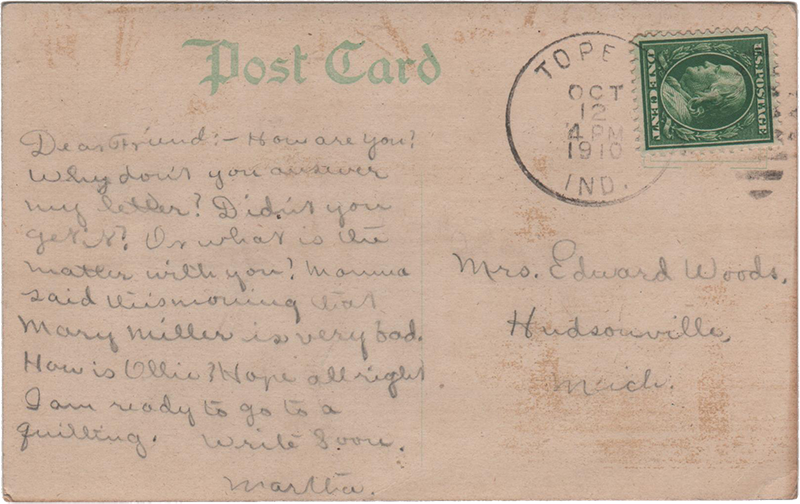 Post Card
TOPE
OCT
12
4 PM
1910
IND.
U.S. POSTAGE
ONE CENT
Dear Friend:- How are you?
Why don't you answer
my letter? Didn't you
get it? Or what is the
matter with you? Mamma
said this morning that
Mary Miller is very bad.
How is Ollie? Hope all right.
I am ready to go to a
quilting. Write Soon.
Martha.
Mrs. Edward Woods.
Hudsonville,
Mich.